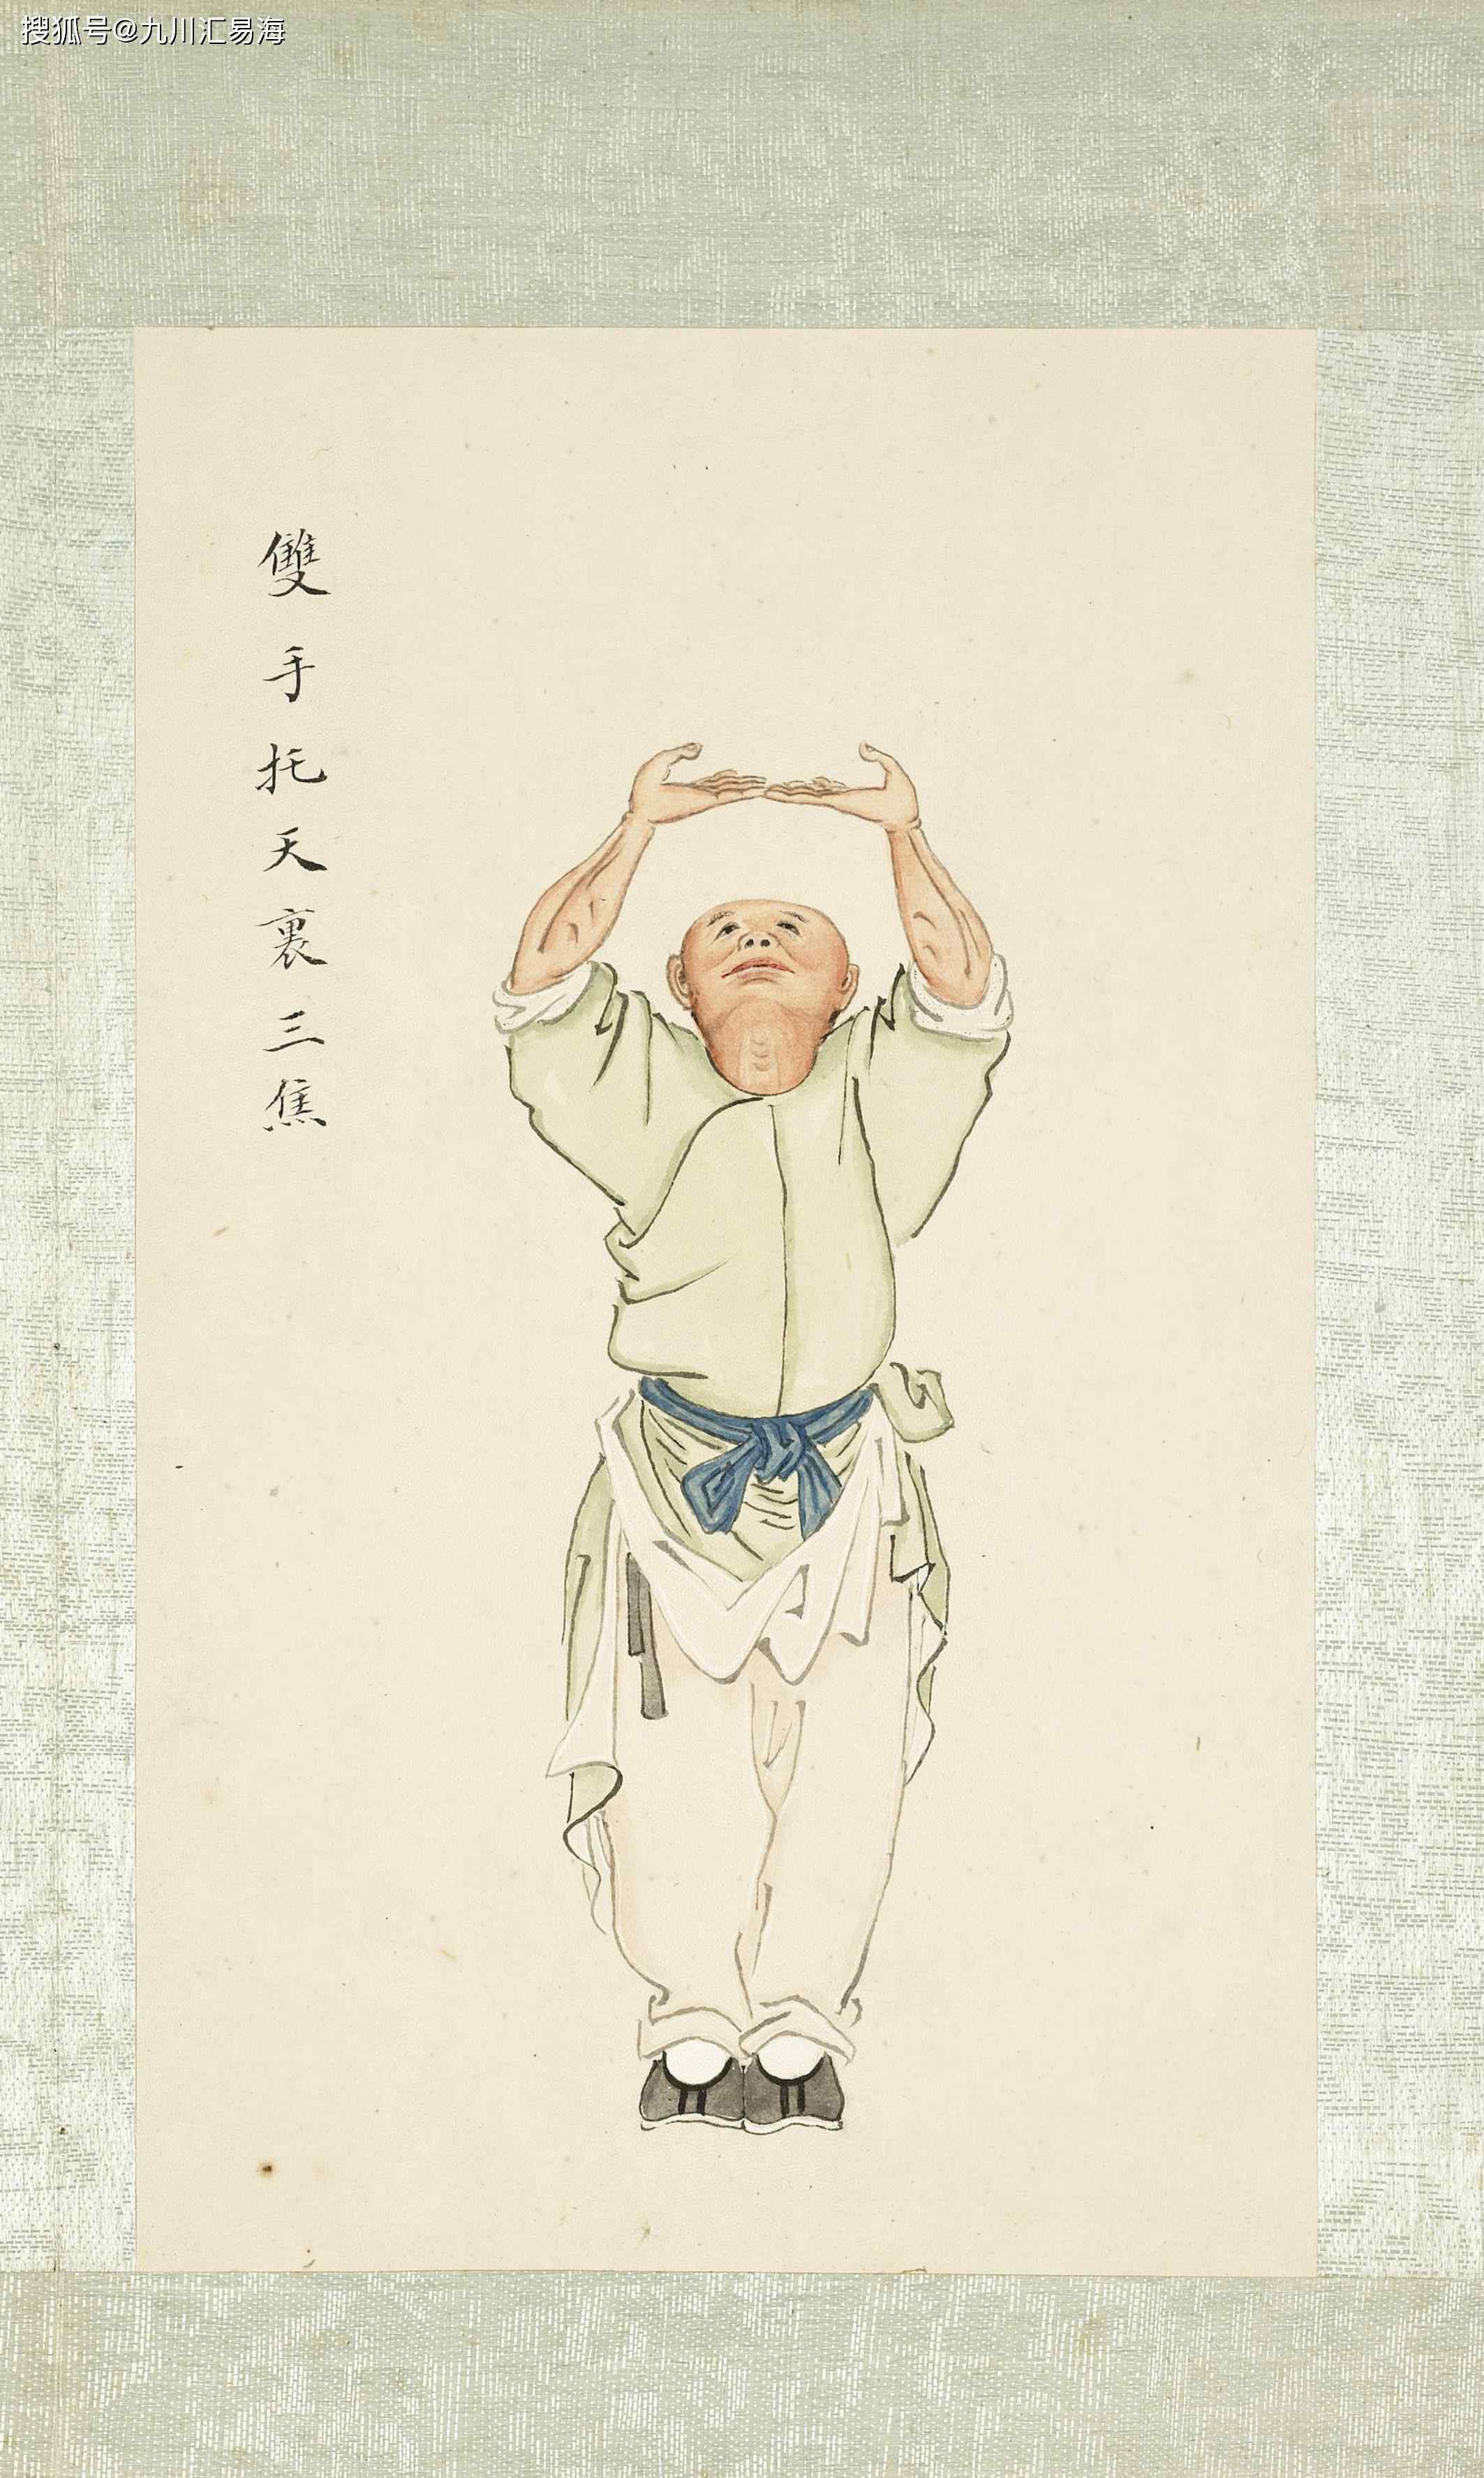 搜狐号@九川汇易海
雙手托天裏三焦